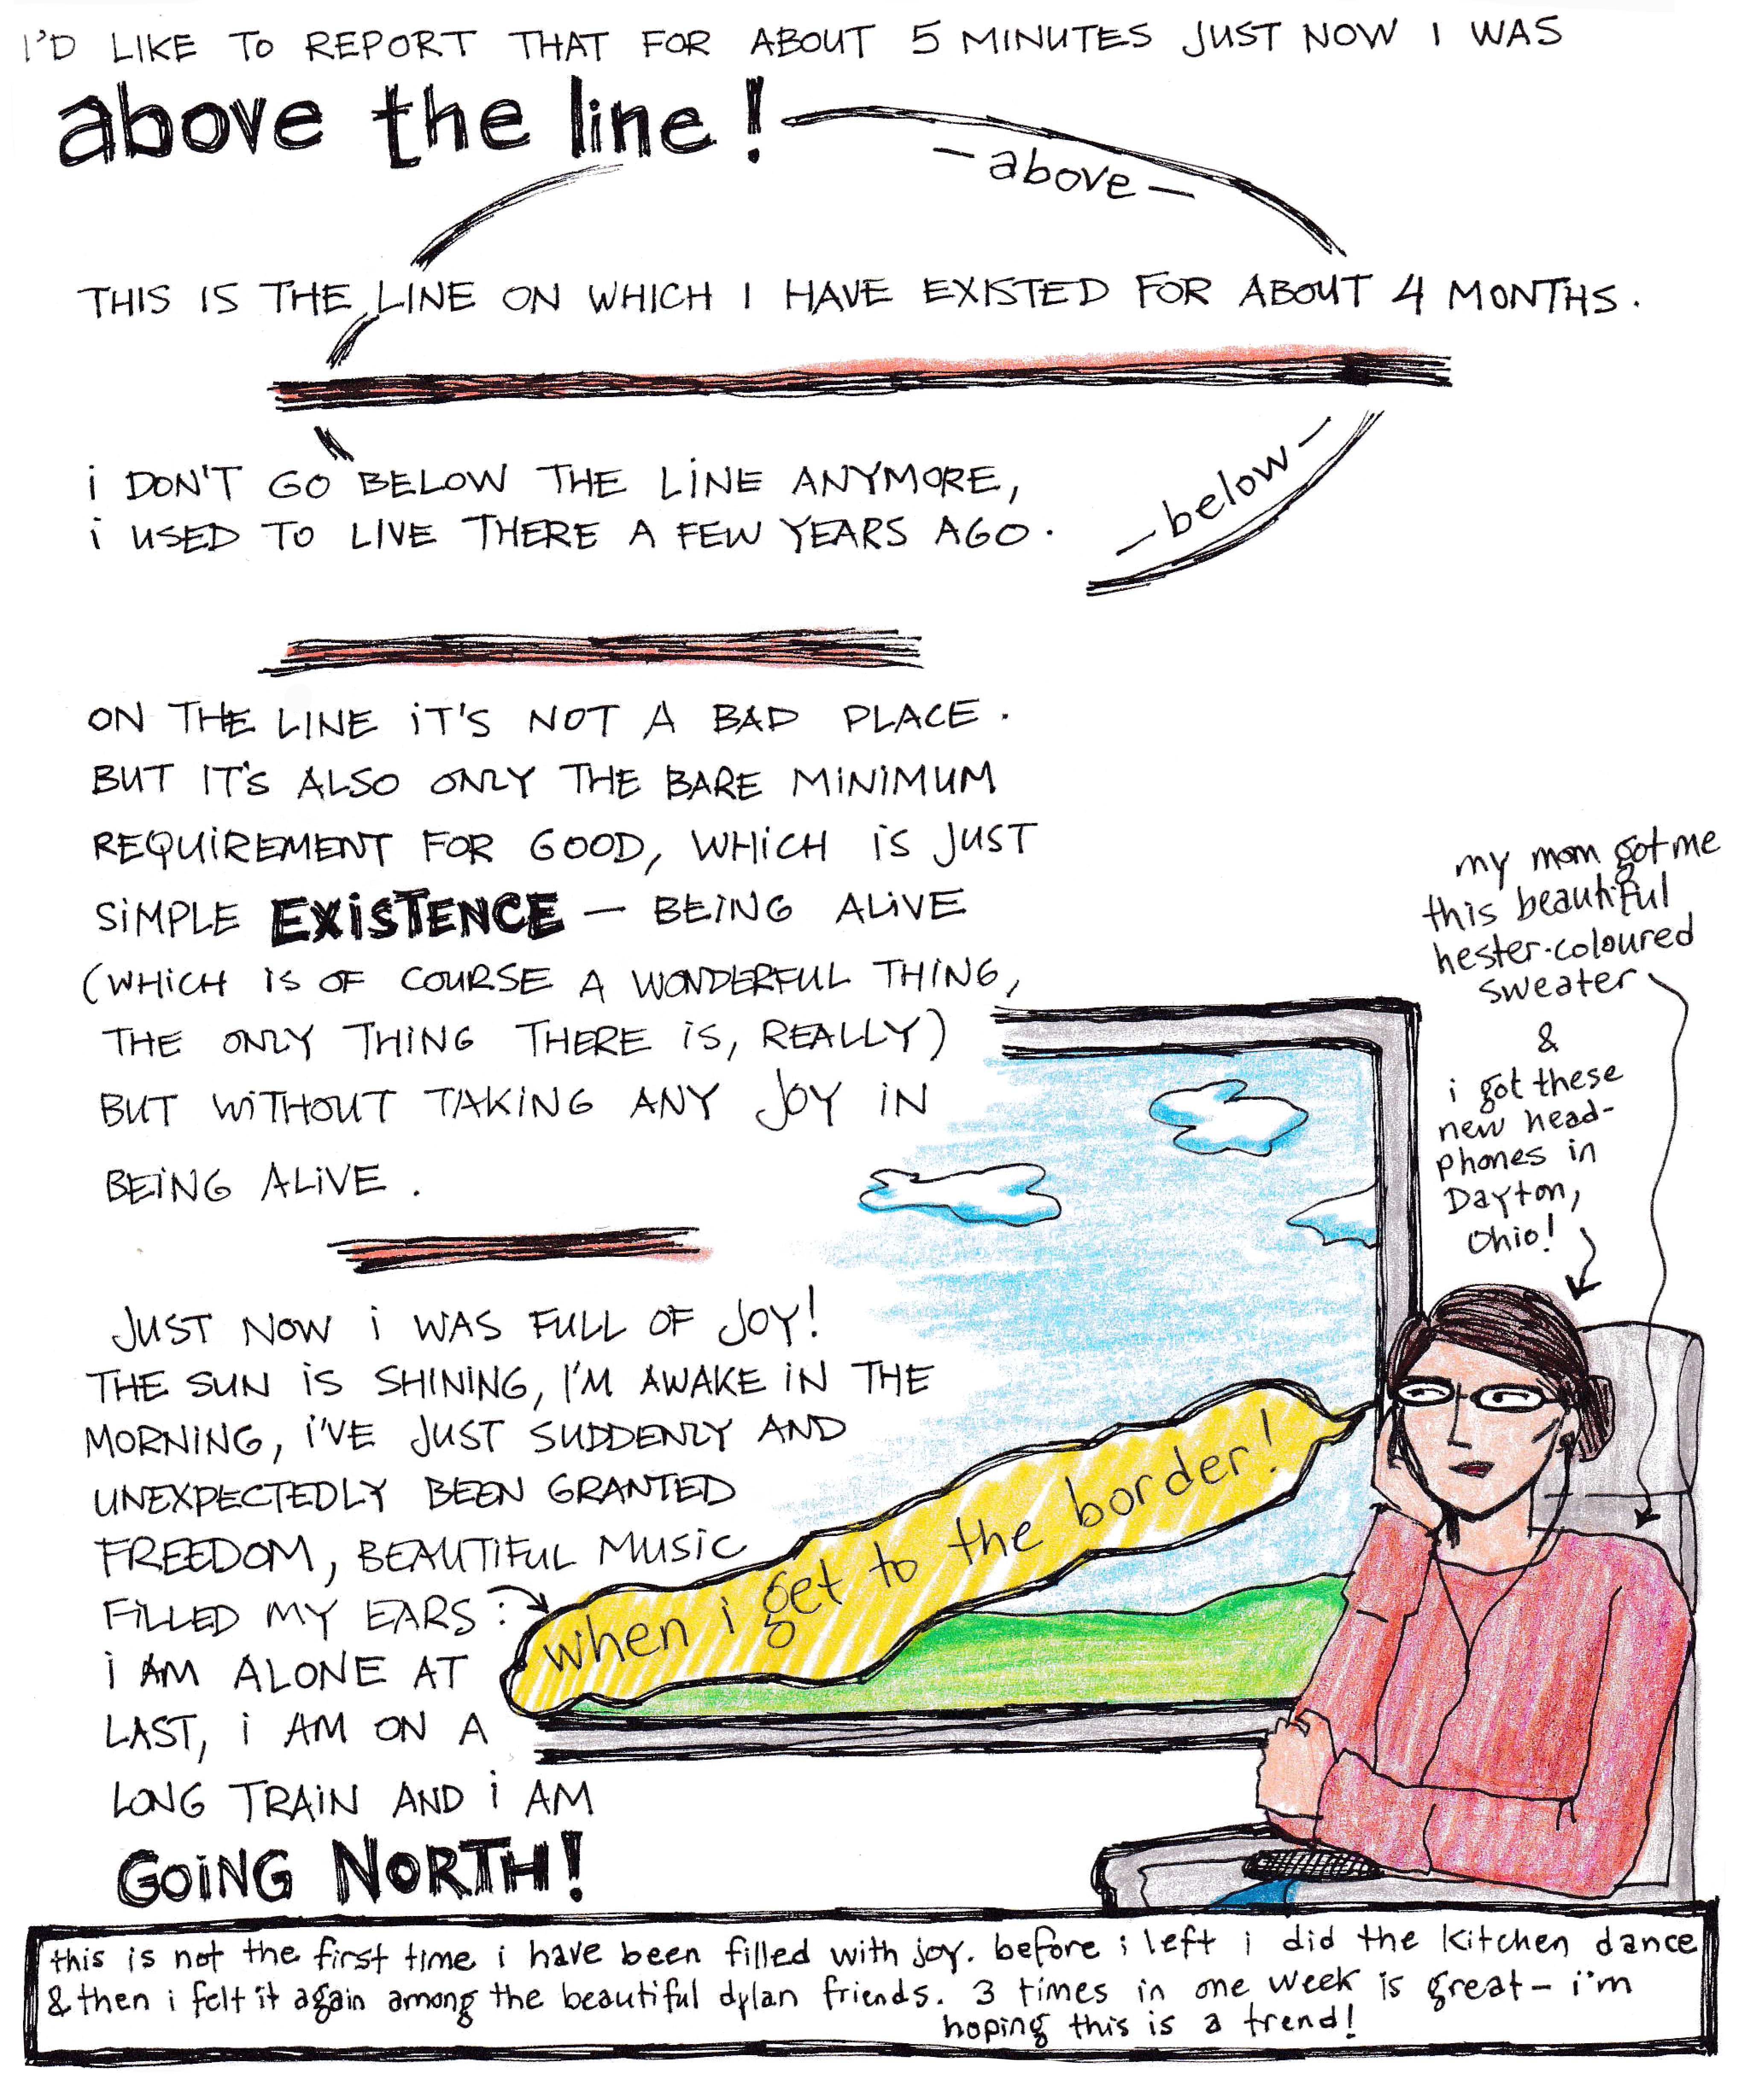 I'D LIKE TO REPORT THAT FOR ABOUT 5 MINUTES JUST NOW I WAS
above the line!
– above –
THIS IS THE LINE ON WHICH I HAVE EXISTED FOR ABOUT 4 MONTHS.
i DON'T GO BELOW THE LINE ANYMORE,
i USED TO LIVE THERE A FEW YEARS AGO.
– below –
ON THE LINE iT'S NOT A BAD PLACE.
BUT IT'S ALSO ONLY THE BARE MINIMUM
REQUIREMENT FOR GOOD, WHICH IS JUST
SIMPLE EXISTENCE – BEING ALIVE
(WHICH IS OF COURSE A WONDERFUL THING,
THE ONLY THING THERE IS, REALLY)
BUT WITHOUT TAKING ANY JOY IN
BEING ALIVE.
my mom got me
this beautiful
hester-coloured
sweater
&
i got these
new head-
phones in
Dayton,
Ohio!
JUST NOW i WAS FULL OF JOY!
THE SUN IS SHINING, I'M AWAKE IN THE
MORNING, I'VE JUST SUDDENLY AND
UNEXPECTEDLY BEEN GRANTED
FREEDOM, BEAUTIFUL MUSIC
FILLED MY EARS:
when i get to the border!
I AM ALONE AT
LAST, i AM ON A
LONG TRAIN AND i AM
GOING NORTH!
this is not the first time i have been filled with joy. before i left i did the kitchen dance
& then i felt it again among the beautiful dylan friends. 3 times in one week is great – i'm
hoping this is a trend!